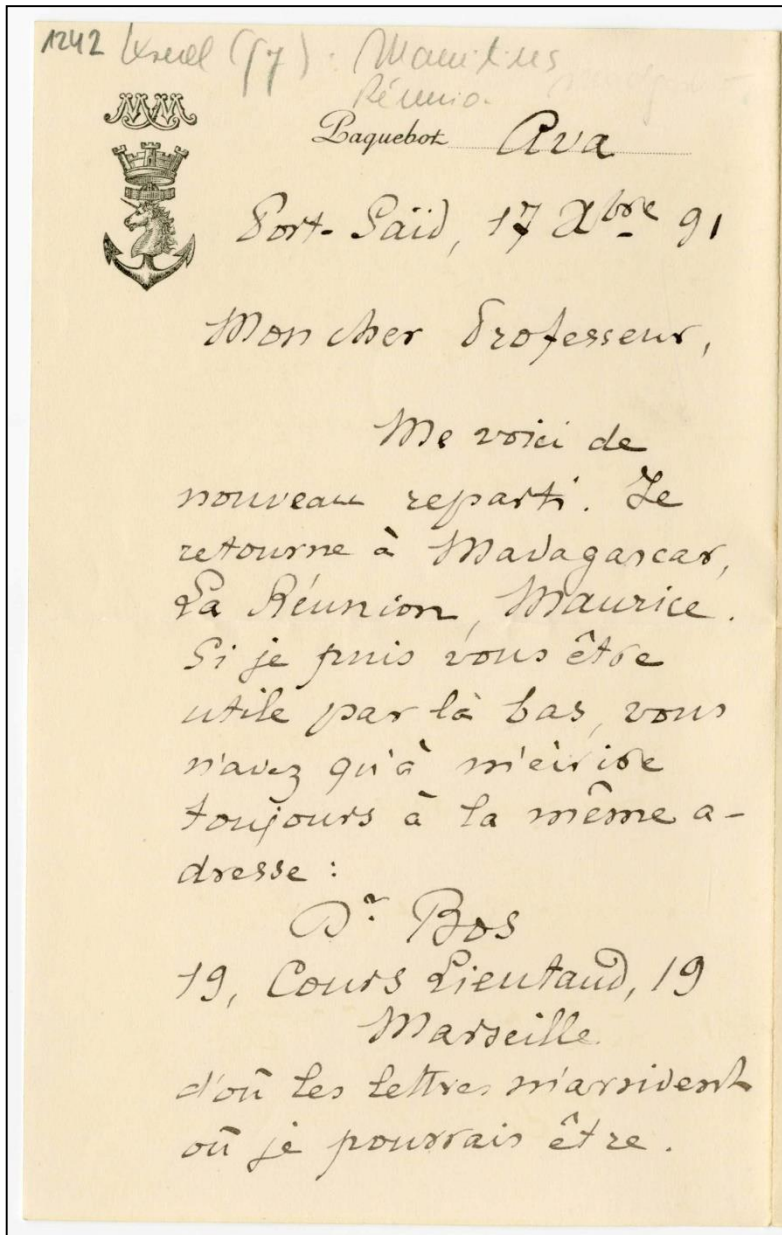 1242 Kreol (fr) : Mauritius
Réunio.
MM
Paquebot Ava
Port-Saïd, 17 Xbre 91
Mon cher Professeur,
Me voici de
nouveau reparti. Je
retourne à Madagascar,
La Réunion, Maurice.
Si je puis vous être
utile par là bas, vous
n'avez qu'à m'écrire
toujours à la même a-
dresse :
Dr Bos
19, Cours Lieutaud, 19
Marseille.
d'où les lettres m'arrivent
où je pourrais être.